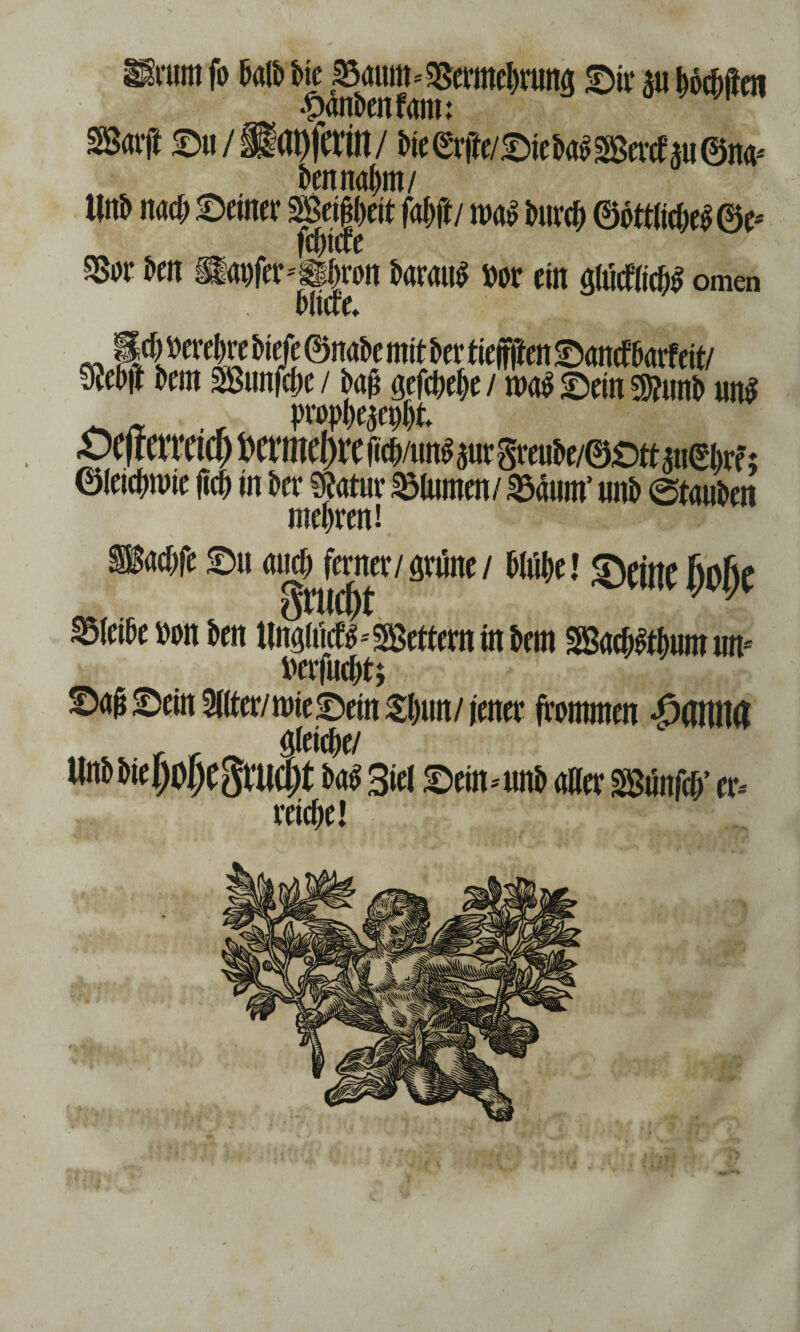 Drum so bald die Baum-Vermehrung Dir zu höchsten
Händen kam:
Warst Du / Kayserin / die Erste/Die das Werck zu Gna-
den nahm/
Und nach Deiner Weißheit sahst/ was durch Göttliches Ge-
schicke
Vor den Kayser-Thron daraus vor ein glücklichs omen
blicke.
Ich verehre diese Gnade mit der tieffsten Danckbarkeit/
Nebst dem Wunsche / daß geschehe / was Dein Mund uns
prophezeyht.
Oesterreich vermehre sich/uns zur Freude/GOtt zu Ehre;
Gleichwie sich in der Natur Blumen/ Bäum' und Stauden
mehren!
Wachse Du auch ferner/ grüne / blühe! Deine hohe
Frucht
Bleibe von den Unglücks-Wettern in dem Wachsthum un-
versucht;
Daß Dein Alter/wie Dein Thun/ jener frommen Hanna
gleiche/
Und die hohe Frucht das Ziel Dein-und aller Wünsch' er-
reiche!